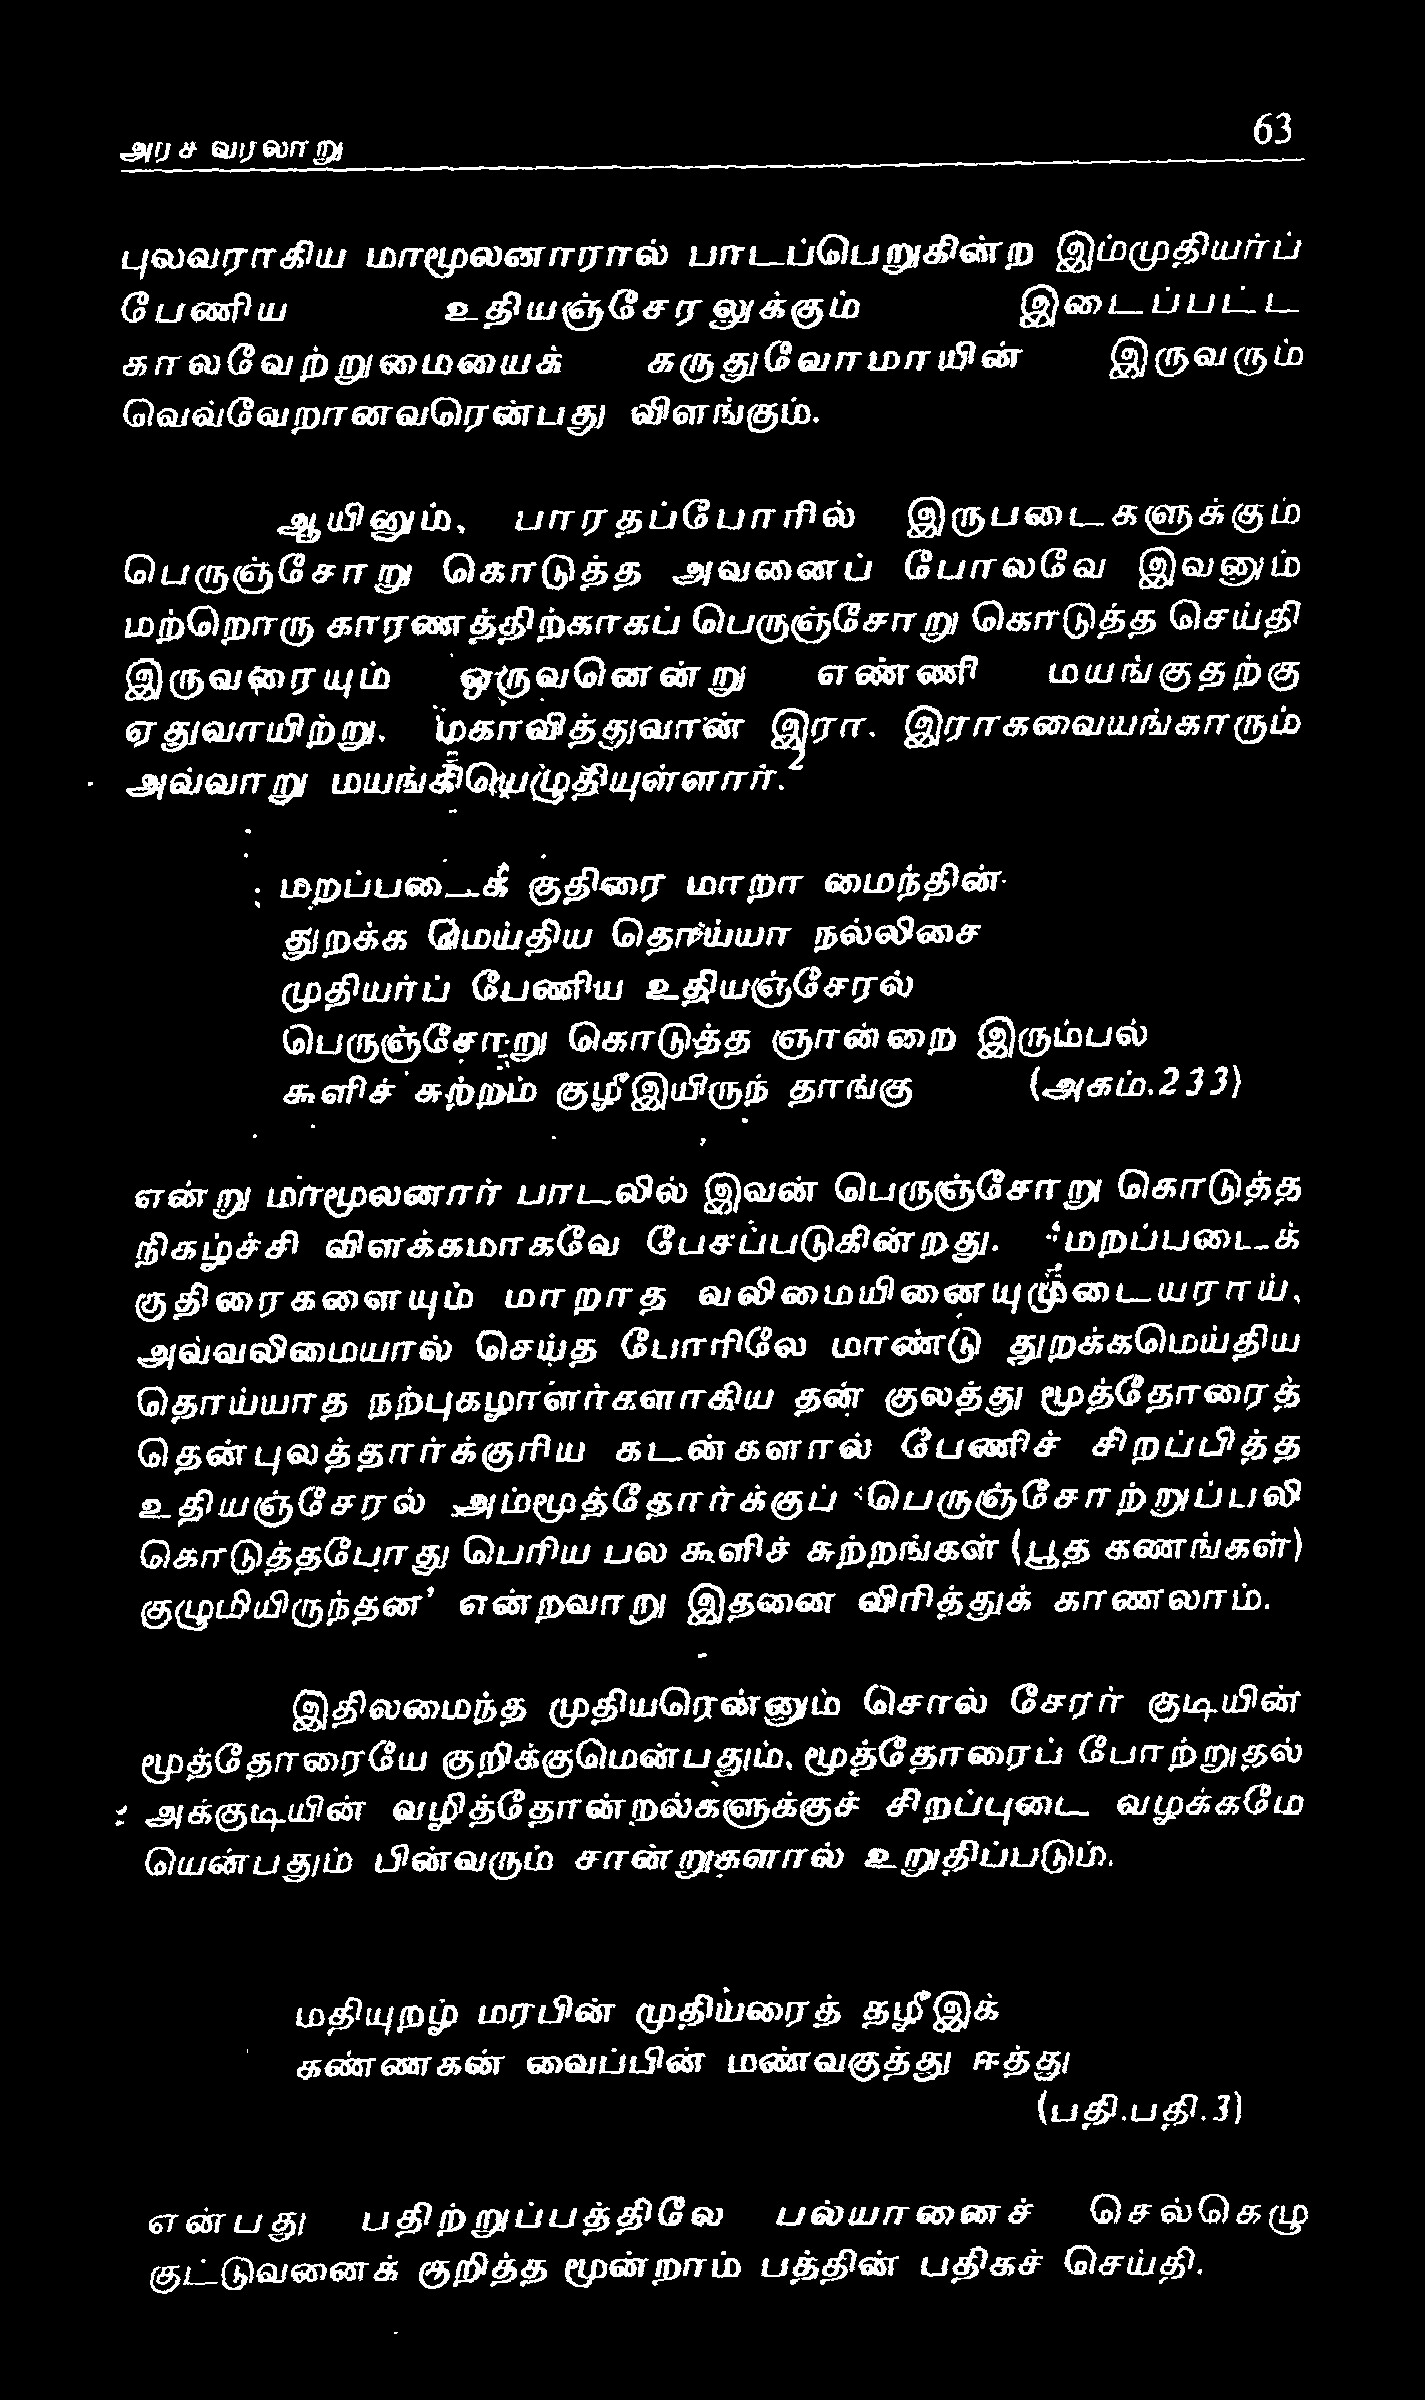 63
அரச வரலாறு
புலவராகிய மாமூலனாரால் பாடப்பெறுகின்ற இம்முதியர்ப்
பேணிய உதியஞ்சேரலுக்கும் இடைப்பட்ட
காலவேற்றுமையைக் கருதுவோமாயின் இருவரும்
வெவ்வேறானவரென்பது விளங்கும்.
ஆயினும், பாரதப்போரில் இருபடைகளுக்கும்
பெருஞ்சோறு கொடுத்த அவனைப் போலவே இவனும்
மற்றொரு காரணத்திற்காகப் பெருஞ்சோறு கொடுத்த செய்தி
இருவரையும் ஒருவனென்று எண்ணி மயங்குதற்கு
ஏதுவாயிற்று. மகாவித்துவான் இரா. இராகவையங்காரும்
அவ்வாறு மயங்கியெழுதியுள்ளார்.2
மறப்படைக் குதிரை மாறா மைந்தின்
துறக்க மெய்திய தொய்யா நல்லிசை
முதியர்ப் பேணிய உதியஞ்சேரல்
பெருஞ்சோறு கொடுத்த ஞான்றை இரும்பல்
கூளிச் சுற்றம் குழீஇயிருந் தாங்கு (அகம்.233)
என்று மாமூலனார் பாடலில் இவன் பெருஞ்சோறு கொடுத்த
நிகழ்ச்சி விளக்கமாகவே பேசப்படுகின்றது. ‘மறப்படைக்
குதிரைகளையும் மாறாத வலிமையினையுமுடையராய்,
அவ்வலிமையால் செய்த போரிலே மாண்டு துறக்கமெய்திய
தொய்யாத நற்புகழாளர்களாகிய தன் குலத்து மூத்தோரைத்
தென்புலத்தார்க்குரிய கடன்களால் பேணிச் சிறப்பித்த
உதியஞ்சேரல் அம்மூத்தோர்க்குப் ‘பெருஞ்சோற்றுப்பலி
கொடுத்தபோது பெரிய பல கூளிச் சுற்றங்கள் (பூத கணங்கள்)
குழுமியிருந்தன’ என்றவாறு இதனை விரித்துக் காணலாம்.
இதிலமைந்த முதியரென்னும் சொல் சேரர் குடியின்
மூத்தோரையே குறிக்குமென்பதும், மூத்தோரைப் போற்றுதல்
அக்குடியின் வழித்தோன்றல்களுக்குச் சிறப்புடை வழக்கமே
யென்பதும் பின்வரும் சான்றுகளால் உறுதிப்படும்.
மதியுறழ் மரபின் முதியரைத் தழீஇக்
கண்ணகன் வைப்பின் மண்வகுத்து ஈத்து
(பதி.பதி.3)
என்பது பதிற்றுப்பத்திலே பல்யானைச் செல்கெழு
குட்டுவனைக் குறித்த மூன்றாம் பத்தின் பதிகச் செய்தி.